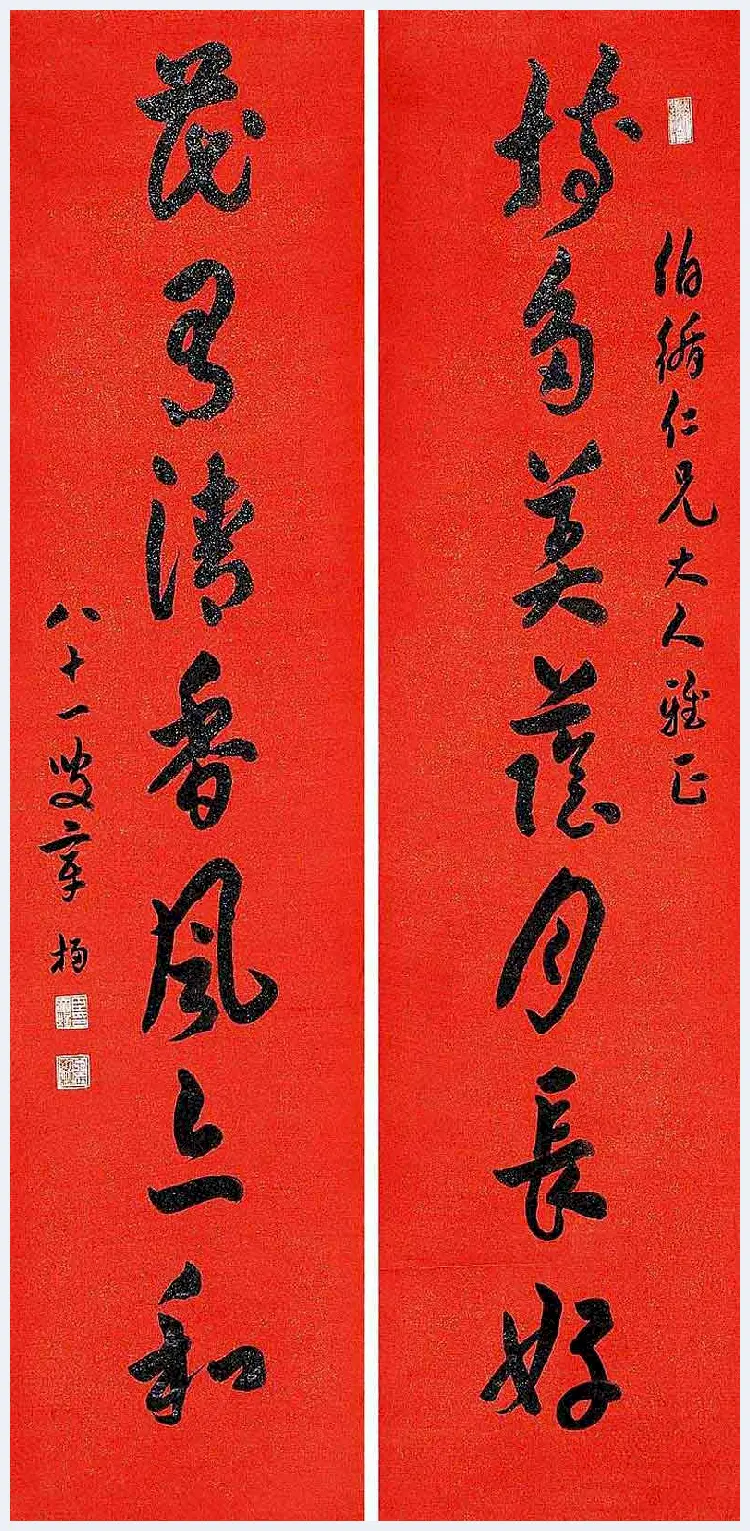 伯循仁兄大人雅正
樹多美蔭月長好
花有清香風亦和
八十一叟章梫